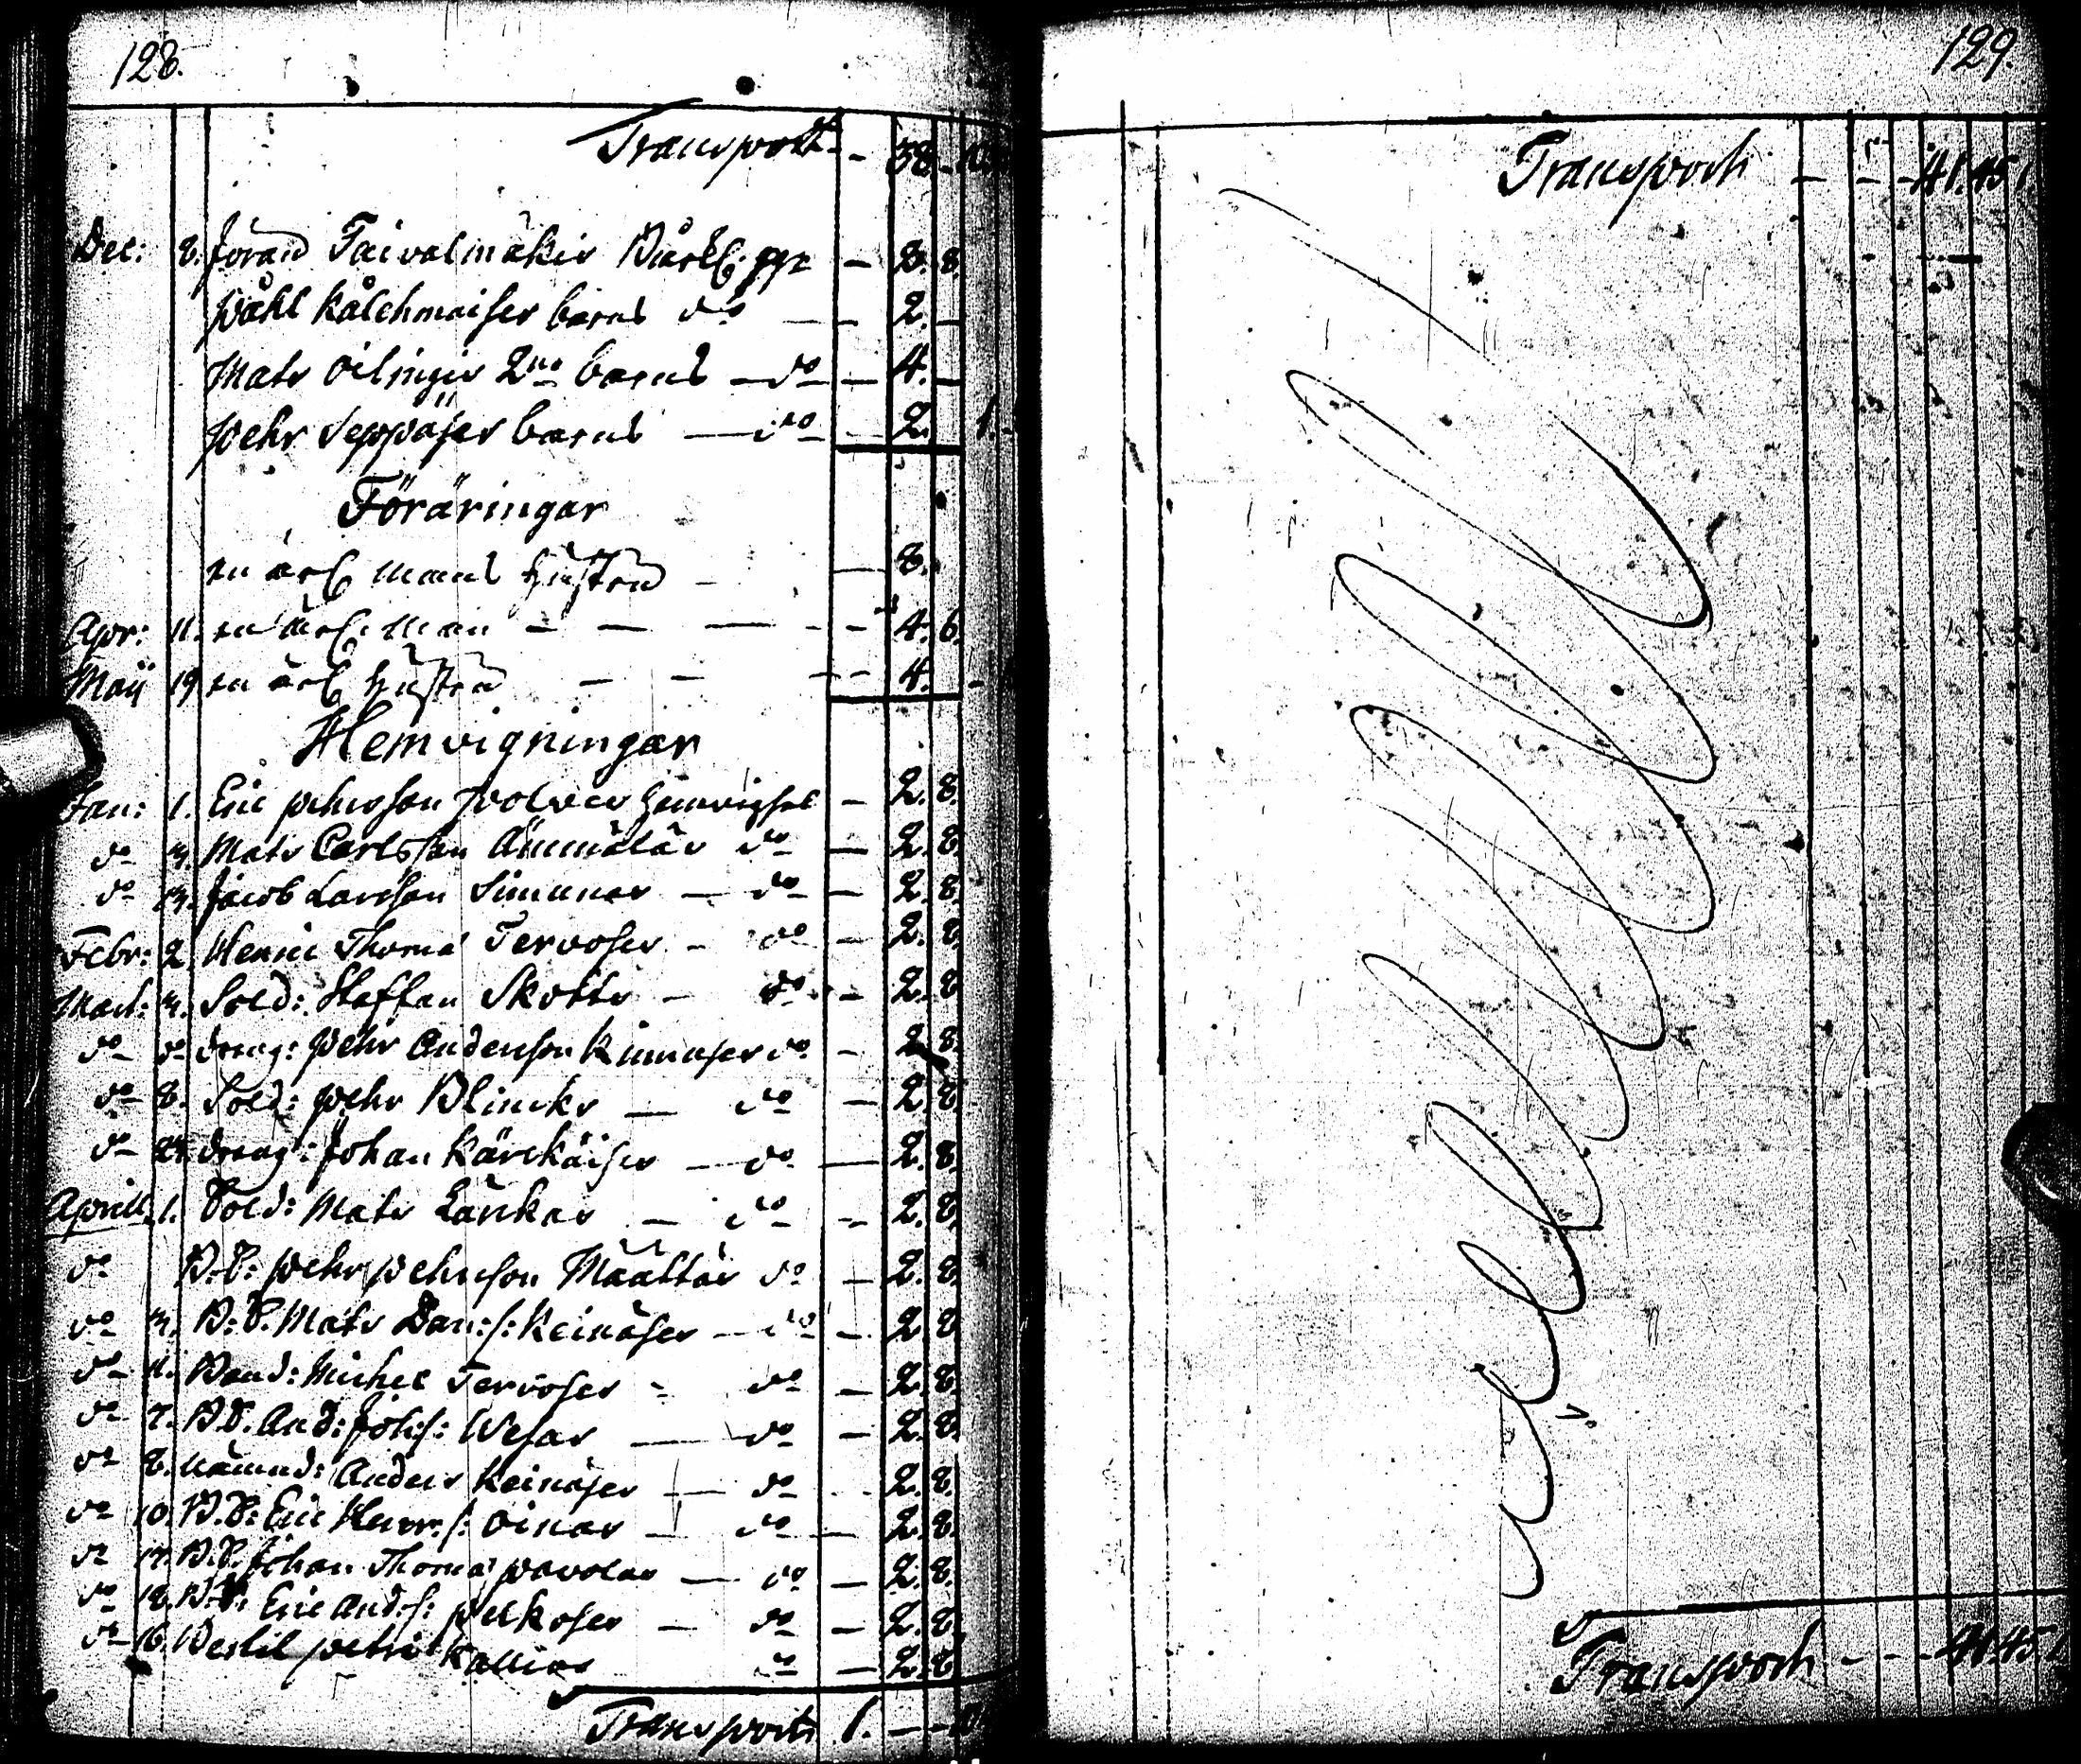 128.
Transport - 38 -
Dec: 8. Jöran Taivalmäkis Bårkl: ppr — 2. 8.
Påhl Kålehmaises barns do — 2. —
Mats Oilingis 2ne barns — do — 4. —
Pehr Seppäses barns — do — 2.
Föräringar
en ärl mans hustru — 8.
Apr: 11. en ärl. man — — — 4. 6.
Maij 19 en ärl hustru — — — 4.
Hemvigningar
Jan: 1. Eric Pehrsson hemvigsel — 2. 8.
do 3. Mats Carlsson Ämmäläs do — 2. 8.
do 13. Jacob Larsson Simunas — do — 2. 8.
Febr: 2 Henric Thoma Tervoses — do — 2. 8.
Mart: 3. Sold: Staffan Skotts — do — 2. 8
do do Drag: Pehr Andersson Kinnuses do — 2 8.
do 8. Sold: Pehr Blincks — do — 2. 8.
do 24. Drag: Johan Kärckäises — do — 2. 8.
Aprill 1. Sold: Mats Länkas — do — 2. 8.
do B:S: Pehr Pehrsson Määttäs do — 2. 8.
do 3. B:S. Mats Dan:s: Keinäses — do — 2. 8.
do 4. Bond: Michel Tervoses — do — 2. 8.
do 7. B.S. And: Joh:s: Wesas — do — 2. 8.
do 8. Nämnd: Anders Keinäses — do — 2. 8.
do 10. B.S: Eric Henr:s: Oinas — do — 2. 8.
do 17. B.S. Johan Thoma Pavolas — do — 2. 8.
do 18. B.S: Eric And:s: Pelkoses — do — 2. 8.
do 16. Bertil Petri Kallios do — 2. 8
Transport 1. — —
129.
Transport — — 41.45
Transport - - - 41.45